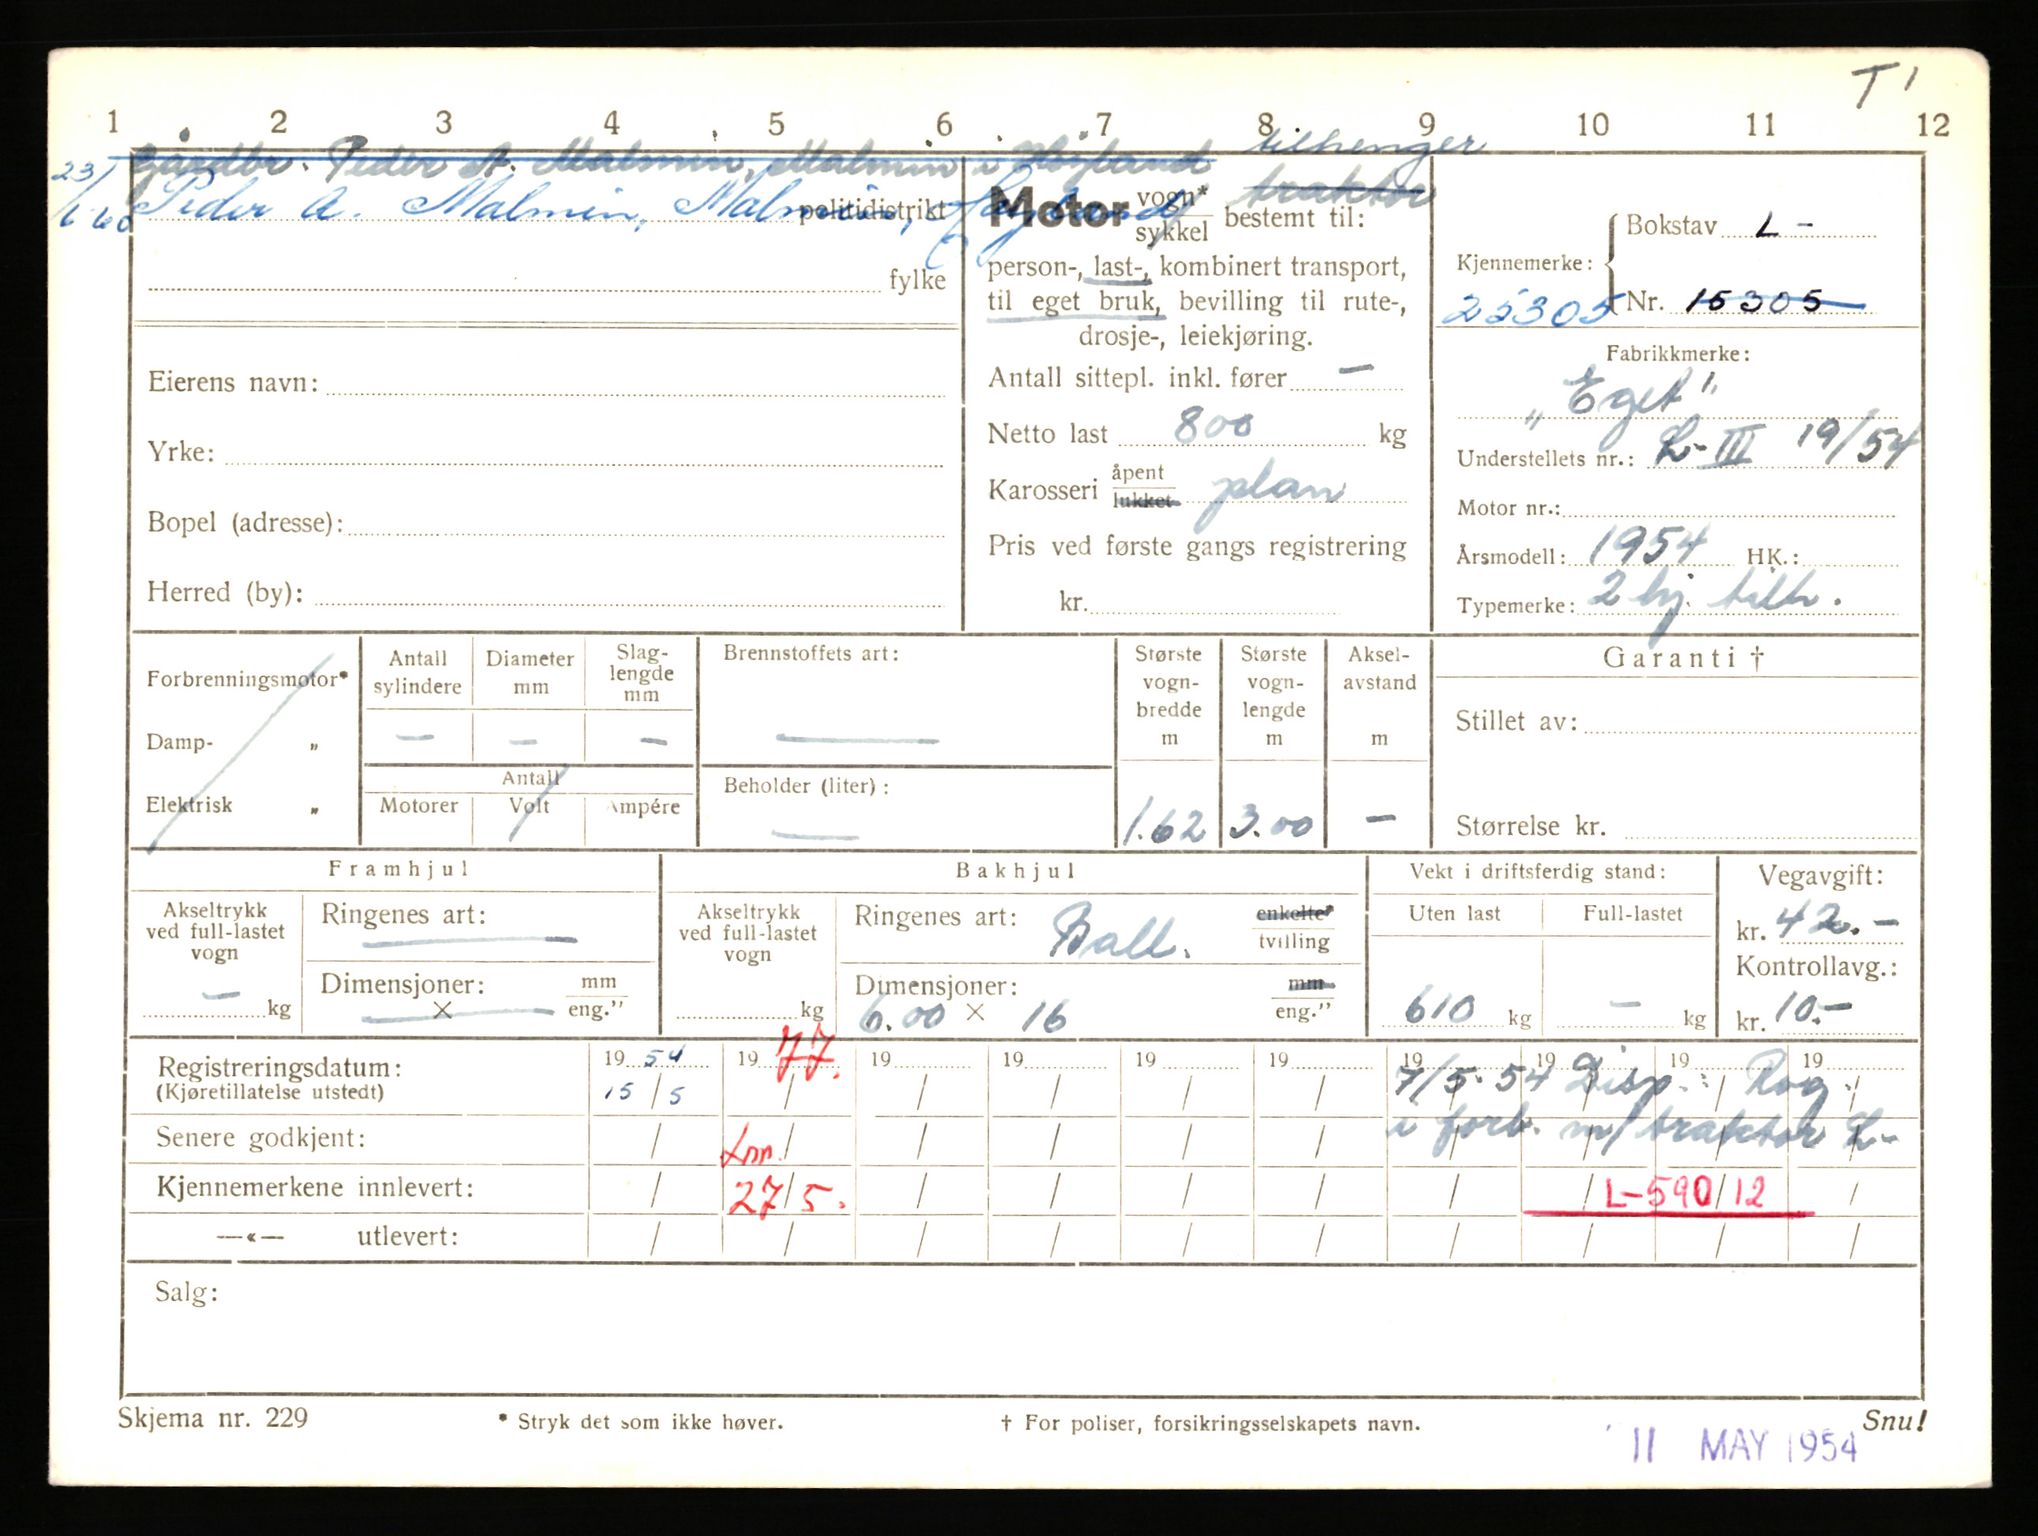 T 1
1 2 3 4 5 6 7 8 9 10 11 12
Gårdbr. Peder A. Malmin, Malmin i Høyland
23/6 60 Peder A. Malmin, Malmin, Høyland
politidistrikt
fylke
Eierens navn:
Yrke:
Bopel (adresse):
Herred (by):
tilhenger
Motor vogn* sykkel bestemt til: traktor
person-, last-, kombinert transport,
til eget bruk, bevilling til rute-,
drosje-, leiekjøring.
Antall sittepl. inkl. fører —
Netto last 800 kg
Karosseri åpent lukket plan
Pris ved første gangs registrering
kr.
Kjennemerke:
Bokstav L -
25305 Nr. 15305
Fabrikkmerke:
„Eget"
Understellets nr.: L-III 19/54
Motor nr.:
Årsmodell: 1954 HK.:
Typemerke: 2 hj. tilh.
Forbrenningsmotor*
Damp- „
Elektrisk „
Antall sylindere —
Diameter mm —
Slag-lengde mm —
Antall
Motorer Volt Ampére
Brennstoffets art: —
Beholder (liter): —
Største vogn-bredde m 1.62
Største vogn-lengde m 3.00
Aksel-avstand m —
Garanti †
Stillet av:
Størrelse kr.
Framhjul
Akseltrykk ved full-lastet vogn — kg
Ringenes art: —
Dimensjoner: × mm eng.”
Bakhjul
Akseltrykk ved full-lastet vogn kg
Ringenes art: Ball. enkelte* tvilling
Dimensjoner: 6.00 × 16 mm eng.”
Vekt i driftsferdig stand:
Uten last 610 kg
Full-lastet — kg
Vegavgift:
kr. 42.-
Kontrollavg.:
kr. 10.-
Registreringsdatum: 19 54 19 77. 19 19 19 19 19 19 19 19
(Kjøretillatelse utstedt) 15/5 / / / / / / / / /
7/5. 54 Disp.: Rog.
Senere godkjent:
i forb. m/traktor L-
Kjennemerkene innlevert: 27/5. L-590/12
—«— utlevert:
Salg:
Skjema nr. 229
* Stryk det som ikke høver.
† For poliser, forsikringsselskapets navn.
Snu!
11 MAY 1954